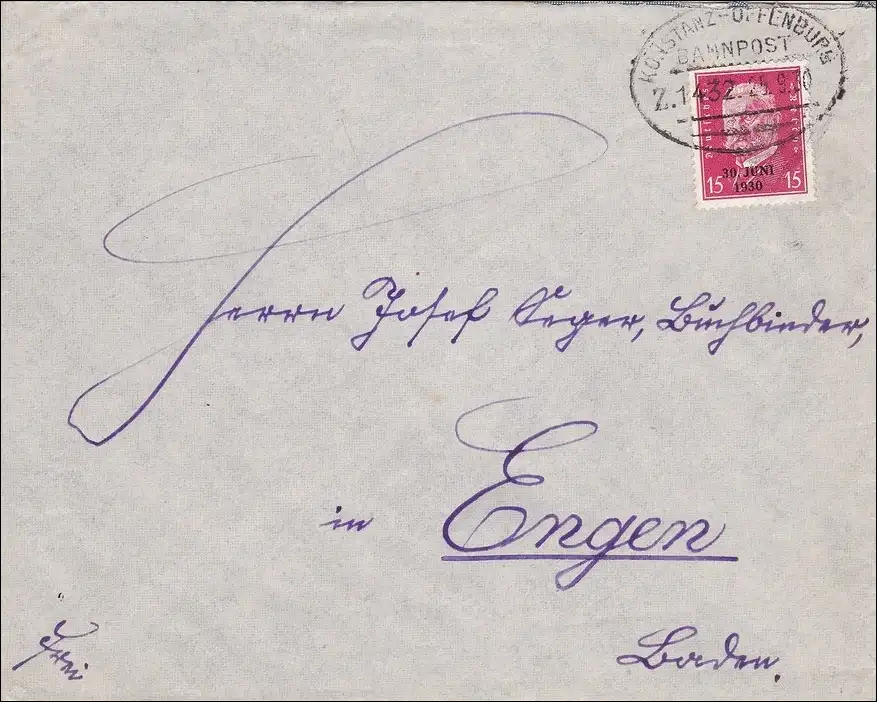 KONSTANZ-OFFENBURG
BAHNPOST
Z.1432 25.9.30
30. JUNI
1930
15 15
Herrn Josef Seger, Buchbinder,
in Engen
Baden.
Frei